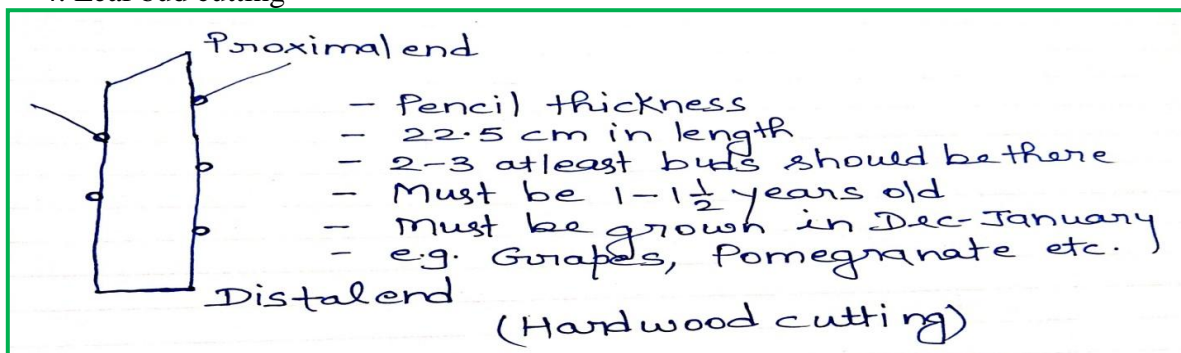 Proximal end
- Pencil thickness
- 22.5 cm in length
- 2-3 atleast buds should be there
- Must be 1-1½ years old
- Must be grown in Dec-January
- e.g. Grapes, Pomegranate etc.
Distal end
(Hardwood cutting)